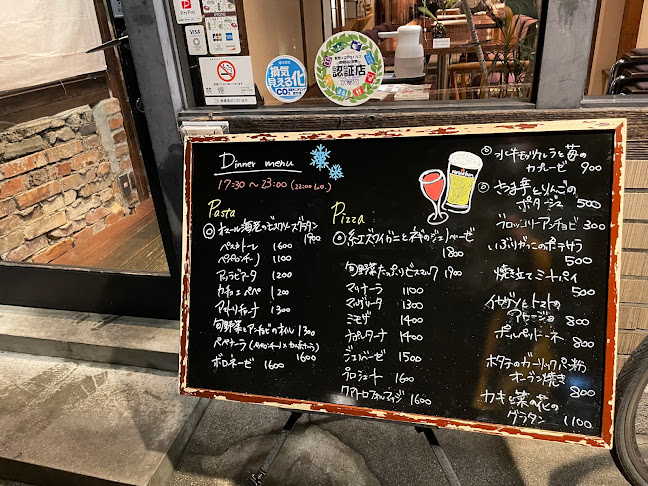 PayPay
VISA
JCB
禁煙
換気
見える化
CO
認証店
京都府
Dinner menu
17:30～23:00 (22:00 L.O.)
Pasta
1900
ペスカトーレ 1600
ペペロンチーノ 1100
アラビアータ 1200
カチョエペペ 1200
アマトリチャーナ 1300
旬野菜とアンチョビのオイル 1300
ペペナーラ (ペペロンチーノ×カルボナーラ) 1600
ボロネーゼ 1600
Pizza
紅ズワイガニと
1800
旬野菜たっぷりビスマルク 1900
マリナーラ 1100
マルゲリータ 1300
ミモザ 1400
ナポレターナ 1400
ジェノベーゼ 1500
プロシュート 1600
クアトロフォルマッジ 1600
水牛モッツァレラと苺の
カプレーゼ 900
やま芋とりんごの
ポタージュ 500
ブロッコリーアンチョビ 300
いぶりがっこのポテサラ
500
焼き立てミートパイ
500
イイダコとトマトの
アヒージョ 800
ポルペッドーネ
800
ホタテのガーリックパン粉
オーブン焼き
800
カキと菜の花の
グラタン 1100